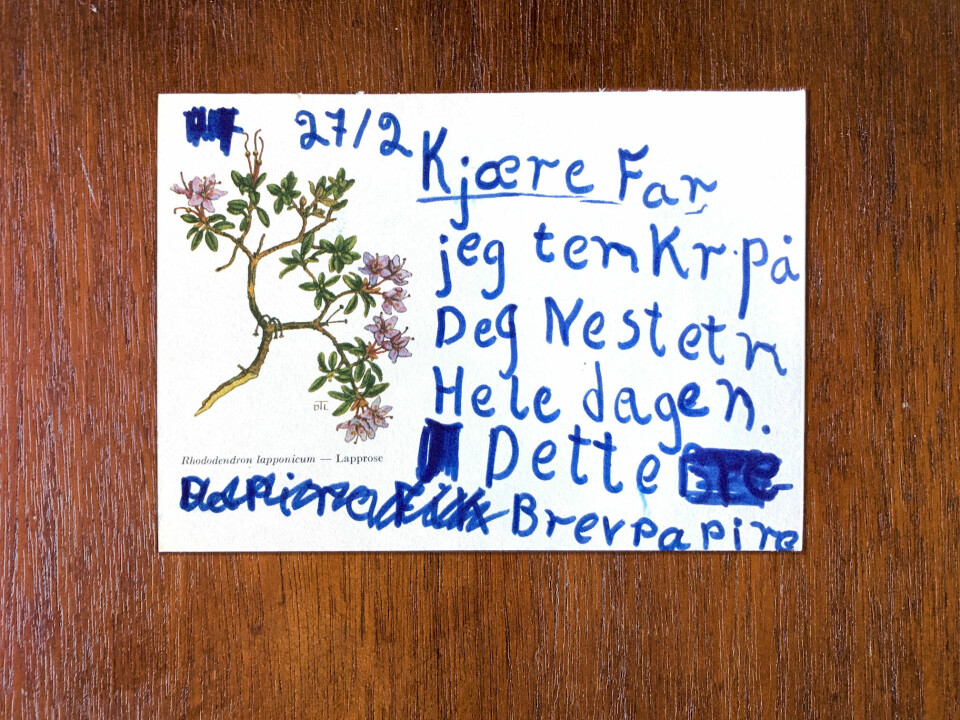 27/2
Kjære Far
jeg tenkr på
Deg Nestetn
Hele dagen.
Dette
Brevpapire
DTL
Rhododendron lapponicum — Lapprose